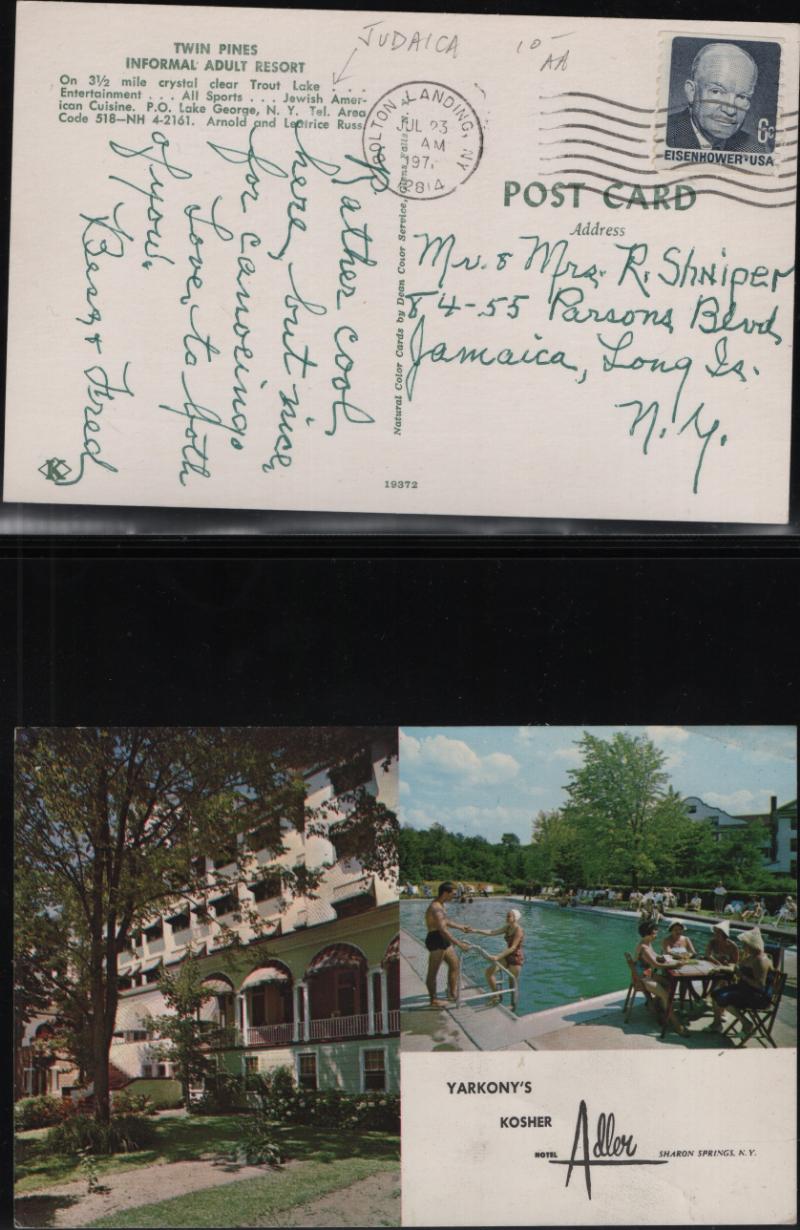 TWIN PINES
INFORMAL ADULT RESORT
On 3½ mile crystal clear Trout Lake . . .
Entertainment . . . All Sports . . . Jewish Amer-
ican Cuisine. P.O. Lake George, N. Y. Tel. Area
Code 518—NH 4-2161. Arnold and Leatrice Russ.
JUDAICA
10-
AA
BOLTON LANDING, NY
JUL 23
AM
197
12814
6c
EISENHOWER·USA
POST CARD
Address
Mr. & Mrs. R. Shniper
84-55 Parsons Blvd
Jamaica, Long Is.
N.Y.
Rather cool
here, but nice
for canoeing.
Love to both
of you.
Bess & Fred
Natural Color Cards by Dean Color Service, Glens Falls, N. Y.
K
19372
YARKONY'S
KOSHER
HOTEL Adler SHARON SPRINGS, N.Y.